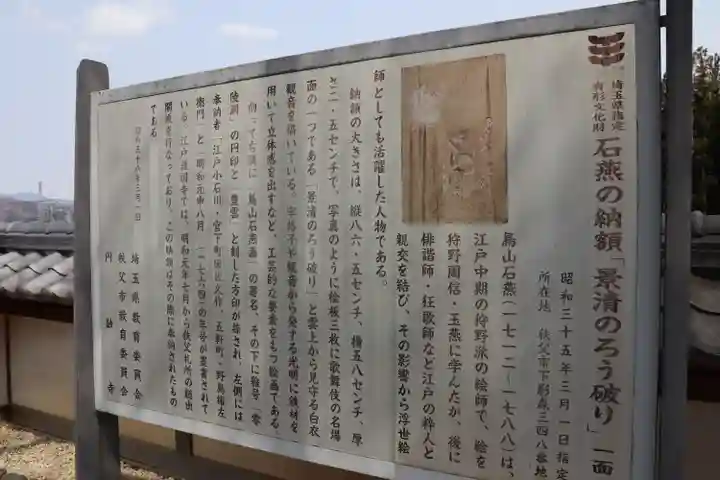 埼玉県指定
有形文化財
石燕の納額「景清のろう破り」一面
昭和三十五年三月一日指定
所在地 秩父市下影森三四八番地
鳥山石燕(一七一二〜一七八八)は、
江戸中期の狩野派の絵師で、絵を
狩野周信・玉燕に学んだが、後に
俳諧師・狂歌師など江戸の粋人と
親交を結び、その影響から浮世絵
師としても活躍した人物である。
納額の大きさは、縦八六・五センチ、横五八センチ、厚
さ二・五センチで、写真のように絵板三枚に歌舞伎の名場
面の一つである「景清のろう破り」と雲上から見守る白衣
観音を描いている。
用いて立体感を出すなど、工芸的な要素をもつ絵画である。
向って右側に「鳥山石燕画」の署名、その下に雅号「零
陵洞」の円印と「豊雲」と刻した方印が捺され、左側には
奉納者「江戸小石川・宮下町
衛門」と「明和元申八月
いる。江戸護国寺では、明和元年七月から秩父札所の総出
開帳を行なっており、この納額はその際に奉納されたもの
である。
昭和五十六年三月一日
埼玉県教育委員会
秩父市教育委員会
円融寺